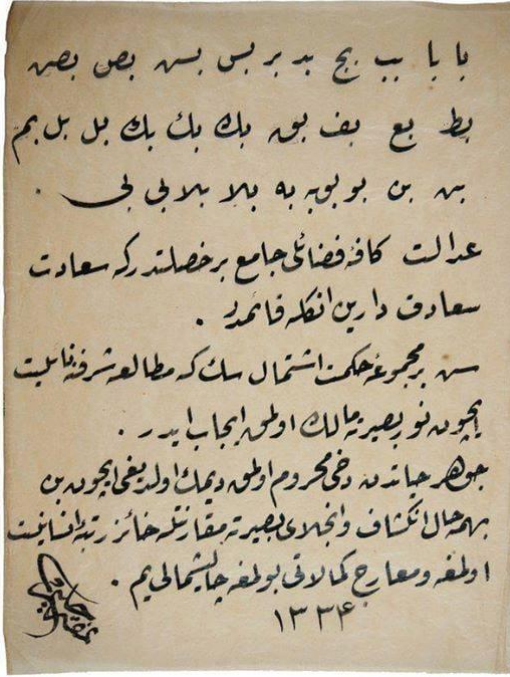 با با بب بج بد بر بس بس بص بص
بط بع بف بق بك بك بك بل بل بم
بن بن بو بو به به بلا بلا بى بى .
عدالت كافۀ فضائلى جامع بر خصلتدركه سعادت
سعادت دارين انكله قائمدر .
سن بر مجموعۀ حكمت اشتمال سك كه مطالعه شرفنه نائليت
ايچون نور بصيرته مالك اولمق ايجاب ايدر .
جوهر حياتدن دخى محروم اولمق ديمك اولديغى ايچون بن
بهمه حال انكشاف وانجلاى بصيرته مقارنتله حائز رتبۀ انسانيت
اولمغه ومعارج كمالاتى بولمغه چاليشمالى يم .
١٣٣٤